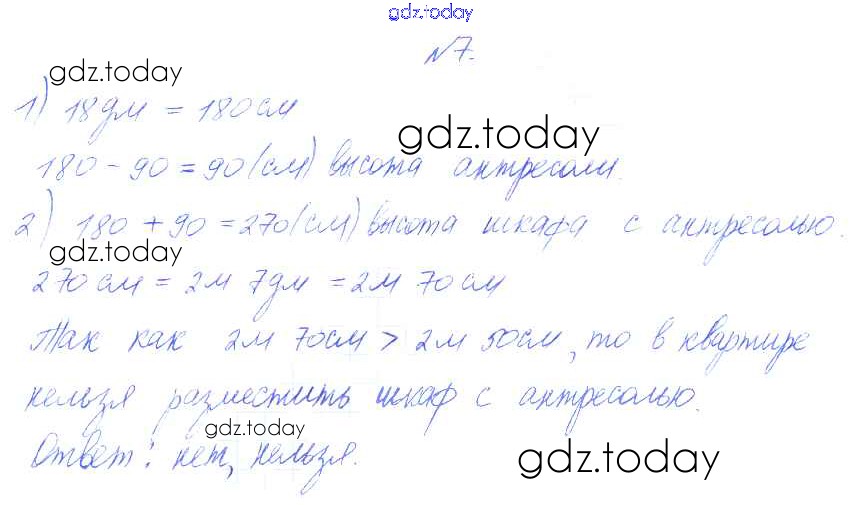 gdz.today
№7.
gdz.today
1) 18дм = 180см
gdz.today
180 - 90 = 90 (см) высота антресоли.
2) 180 + 90 = 270 (см) высота шкафа с антресолью.
gdz.today
270см = 2м 7дм = 2м 70см
Так как 2м 70см > 2м 50см, то в квартире
нельзя разместить шкаф с антресолью.
gdz.today
Ответ: нет, нельзя.
gdz.today